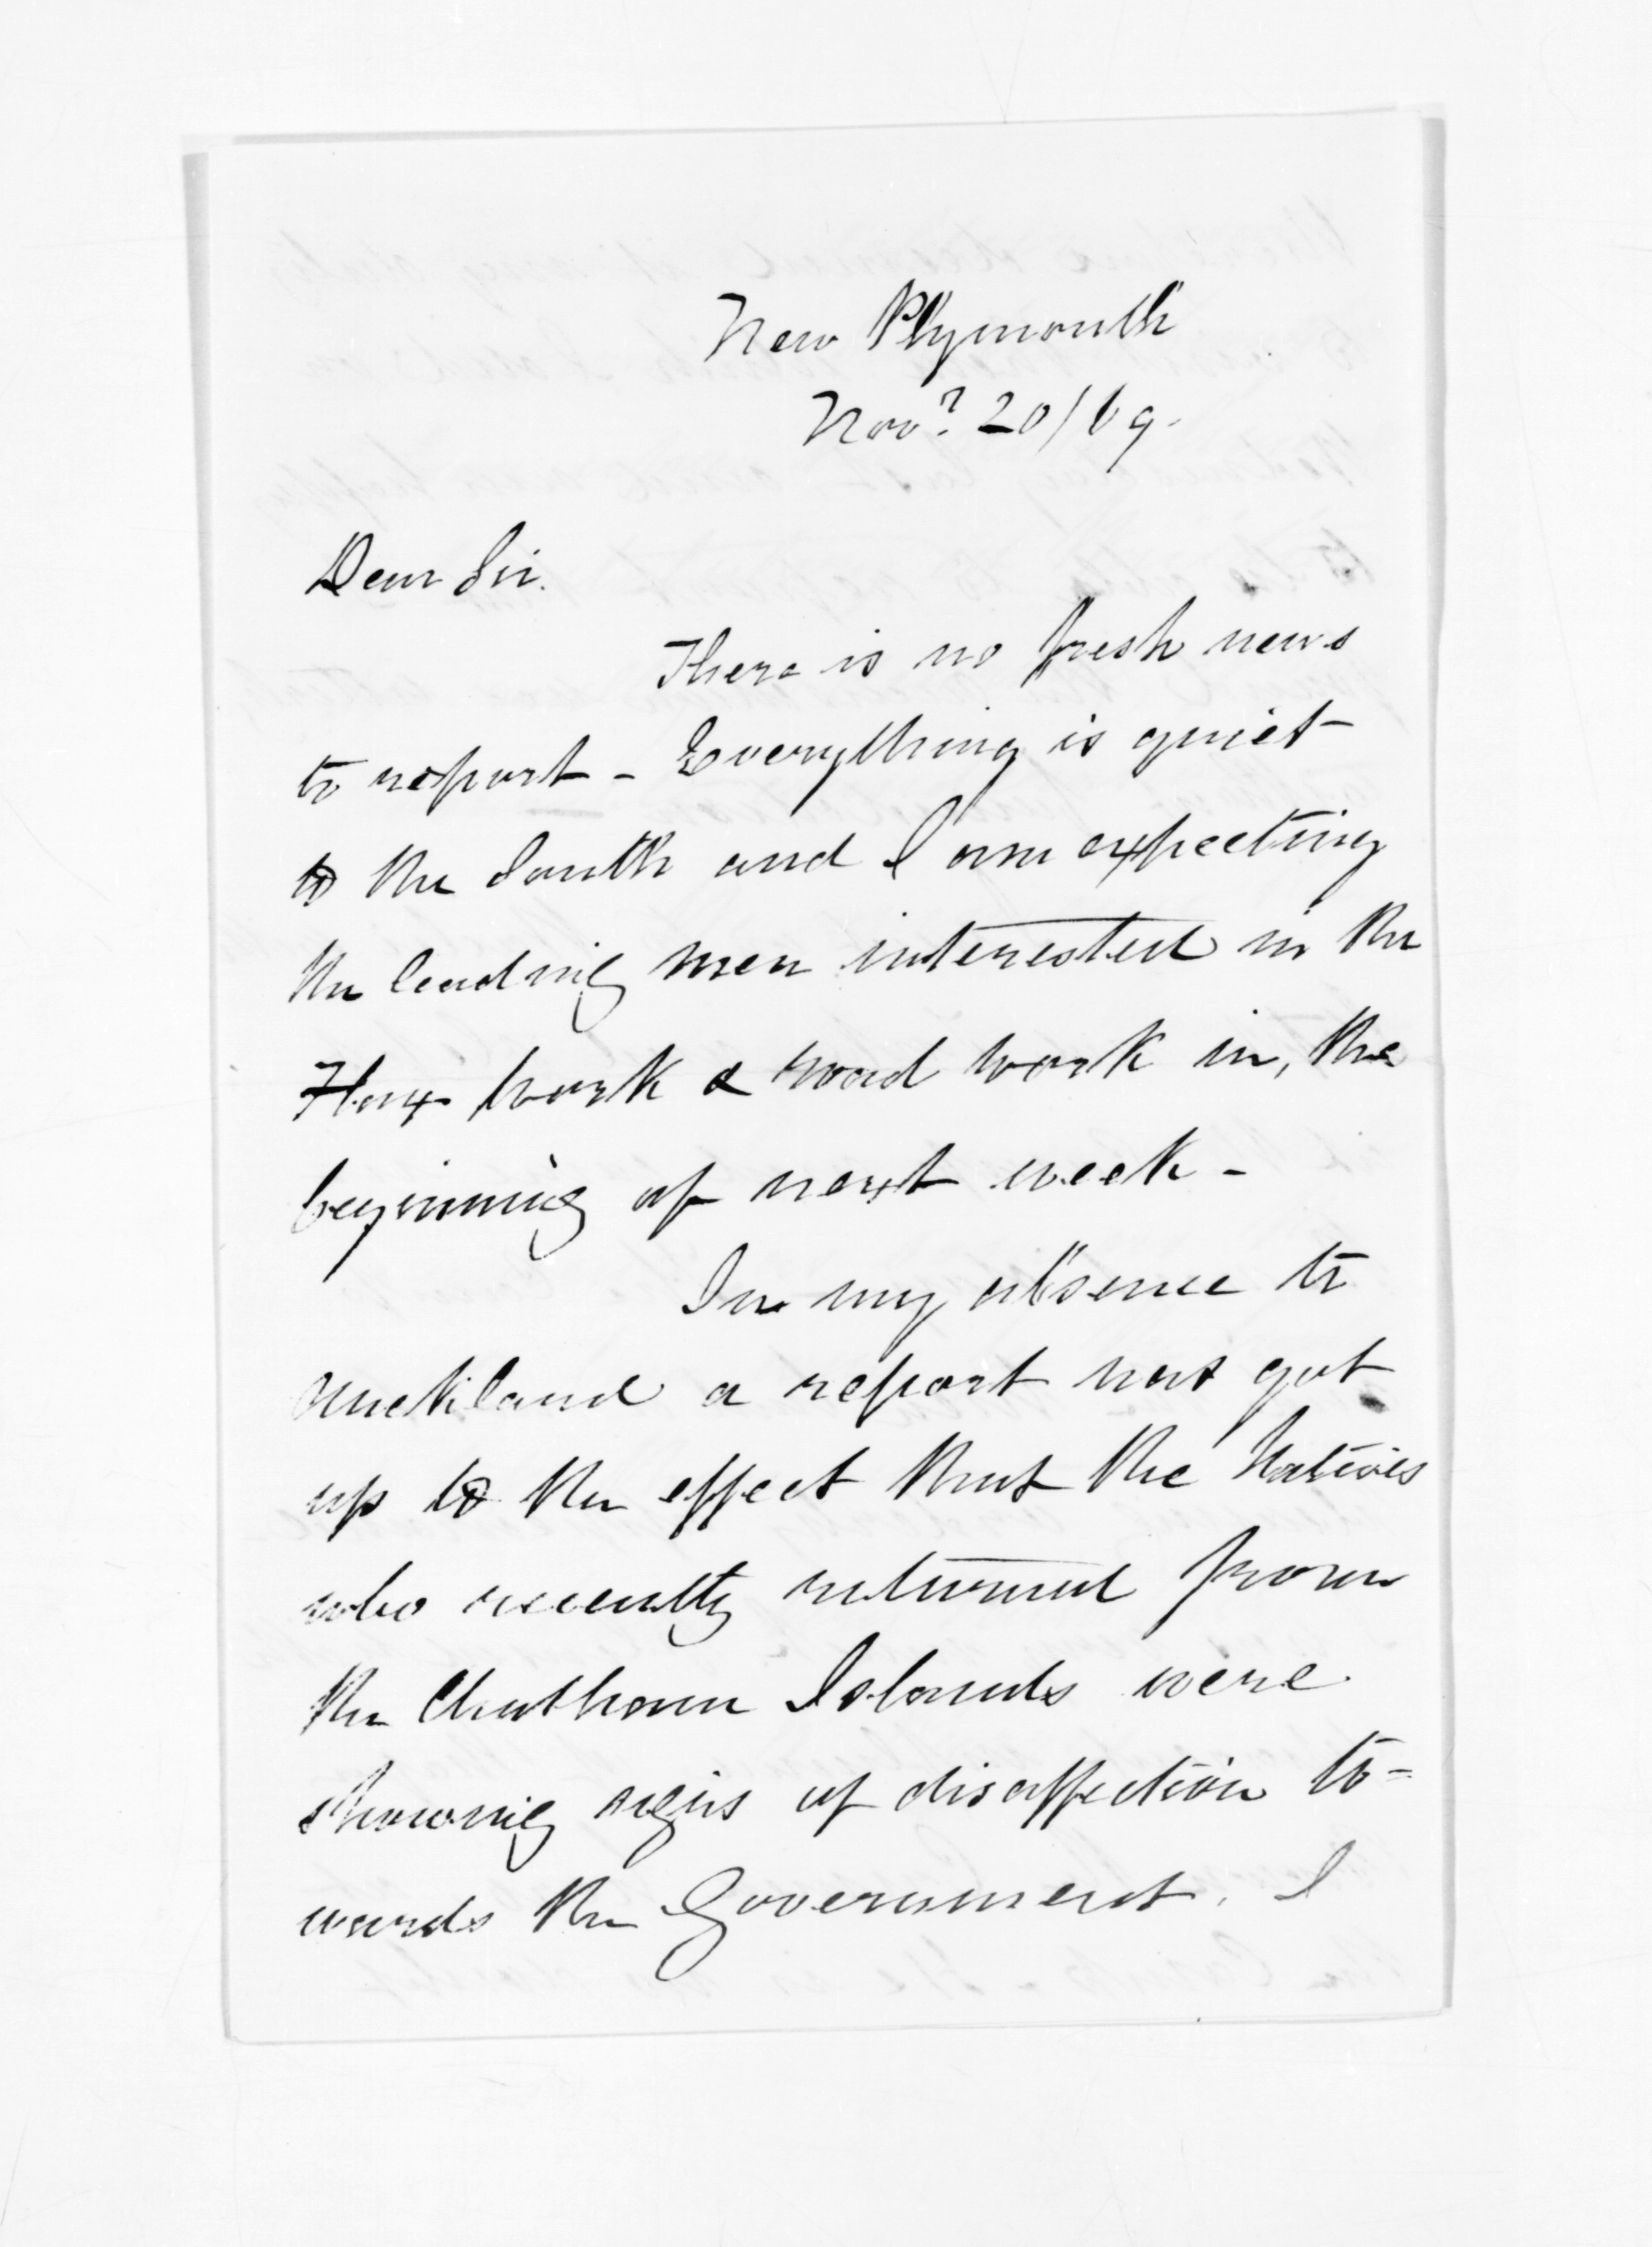 New Plymouth
Novr 20/69.
Dear Sir.
There is no fresh news
to report - Everything is quiet
to the South and I am expecting
the leading men interested in the
Flax work & road work in, the
beginning of next week -
In my absence to
Auckland a report was got
up to the effect that the Natives
who recently returned from
the Chatham Islands were
showing signs of disaffection to=
wards the Government. I